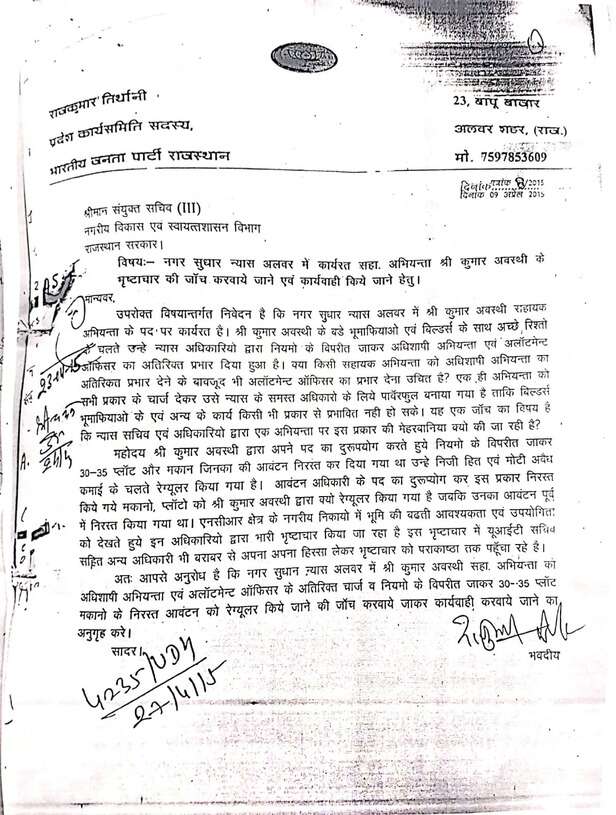 राजकुमार तिर्थानी
प्रदेश कार्यसमिति सदस्य,
भारतीय जनता पार्टी राजस्थान
23, बापू बाजार
अलवर शहर, (राज.)
मो. 7597853609
दिनांक 09 अप्रेल 2015
श्रीमान संयुक्त सचिव (III)
नगरीय विकास एवं स्वायत्तशासन विभाग
राजस्थान सरकार।
विषयः– नगर सुधार न्यास अलवर में कार्यरत सहा. अभियन्ता श्री कुमार अवस्थी के
भृष्टाचार की जॉच करवाये जाने एवं कार्यवाही किये जाने हेतु।
मान्यवर,
उपरोक्त विषयान्तर्गत निवेदन है कि नगर सुधार न्यास अलवर में श्री कुमार अवस्थी सहायक
अभियन्ता के पद पर कार्यरत है। श्री कुमार अवस्थी के बडे भूमाफियाओ एवं बिल्डर्स के साथ अच्छे रिश्तो
के चलते उन्हे न्यास अधिकारियो द्वारा नियमो के विपरीत जाकर अधिशाषी अभियन्ता एवं अलॉटमेन्ट
ऑफिसर का अतिरिक्त प्रभार दिया हुआ है। क्या किसी सहायक अभियन्ता को अधिशाषी अभियन्ता का
अतिरिक्त प्रभार देने के बावजूद भी अलोटमेन्ट ऑफिसर का प्रभार देना उचित है? एक ही अभियन्ता को
सभी प्रकार के चार्ज देकर उसे न्यास के समस्त अधिकारो के लिये पार्वेरफुल बनाया गया है ताकि बिल्डर्स
भूमाफियाओ के एवं अन्य के कार्य किसी भी प्रकार से प्रभावित नही हो सके। यह एक जॉच का विषय है
कि न्यास सचिव एवं अधिकारियो द्वारा एक अभियन्ता पर इस प्रकार की मेहरबानिया क्यो की जा रही है?
महोदय श्री कुमार अवस्थी द्वारा अपने पद का दुरूपयोग करते हुये नियमो के विपरीत जाकर
30-35 प्लॉट और मकान जिनका की आवंटन निरस्त कर दिया गया था उन्हे निजी हित एवं मोटी अवैध
कमाई के चलते रेग्यूलर किया गया है। आवंटन अधिकारी के पद का दुरूप्योग कर इस प्रकार निरस्त
किये गये मकानो, प्लॉटो को श्री कुमार अवस्थी द्वारा क्यो रेग्यूलर किया गया है जबकि उनका आवंटन पूर्व
में निरस्त किया गया था। एनसीआर क्षेत्र के नगरीय निकायो में भूमि की बढती आवश्यकता एवं उपयोगिता
को देखते हुये इन अधिकारियो द्वारा भारी भृष्टाचार किया जा रहा है इस भृष्टाचार में यूआईटी सचिव
सहित अन्य अधिकारी भी बराबर से अपना अपना हिस्सा लेकर भृष्टाचार को पराकाष्ठा तक पहूँचा रहे है।
अतः आपसे अनुरोध है कि नगर सुधान न्यास अलवर में श्री कुमार अवस्थी सहा. अभियन्ता को
अधिशाषी अभियन्ता एवं अलॉटमेन्ट ऑफिसर के अतिरिक्त चार्ज व नियमो के विपरीत जाकर 30-35 प्लॉट
मकानो के निरस्त आवंटन को रेग्यूलर किये जाने की जॉच करवाये जाकर कार्यवाही करवाये जाने का
अनुग्रह करे।
सादर।
भवदीय
4235/UDH
27/4/15